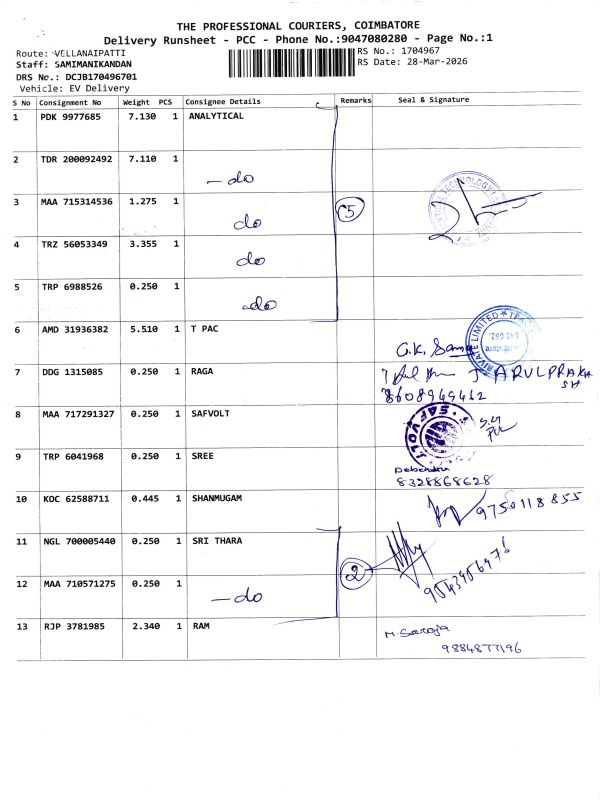 THE PROFESSIONAL COURIERS, COIMBATORE
Delivery Runsheet - PCC - Phone No.:9047080280 - Page No.:1
Route: VELLANAIPATTI
RS No.: 1704967
Staff: SAMIMANIKANDAN
RS Date: 28-Mar-2026
DRS No.: DCJB170496701
Vehicle: EV Delivery
S No Consignment No Weight PCS Consignee Details Remarks Seal & Signature
1 PDK 9977685 7.130 1 ANALYTICAL
2 TDR 200092492 7.110 1
- do
3 MAA 715314536 1.275 1
do
5
4 TRZ 56053349 3.355 1
do
5 TRP 6988526 0.250 1
do
6 AMD 31936382 5.510 1 T PAC
G.K.
7 DDG 1315085 0.250 1 RAGA
J ARULPRAKA
SH
8608969462
8 MAA 717291327 0.250 1 SAFVOLT
SAF VOLT
9 TRP 6041968 0.250 1 SREE
8328868628
10 KOC 62588711 0.445 1 SHANMUGAM
9750118855
11 NGL 700005440 0.250 1 SRI THARA
2
12 MAA 710571275 0.250 1
- do
13 RJP 3781985 2.340 1 RAM
M. Saroja
9884877196